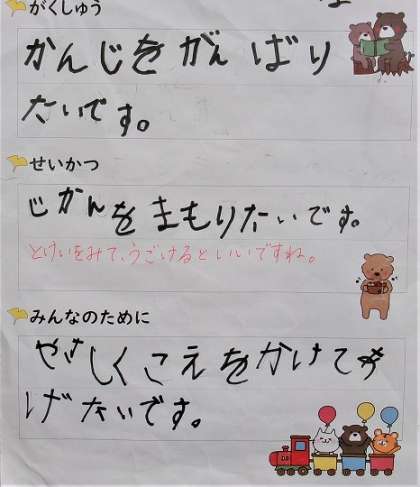 がくしゅう
かんじをがんばり
たいです。
せいかつ
じかんをまもりたいです。
とけいをみて、うごけるといいですね。
みんなのために
やさしくこえをかけてあ
げたいです。